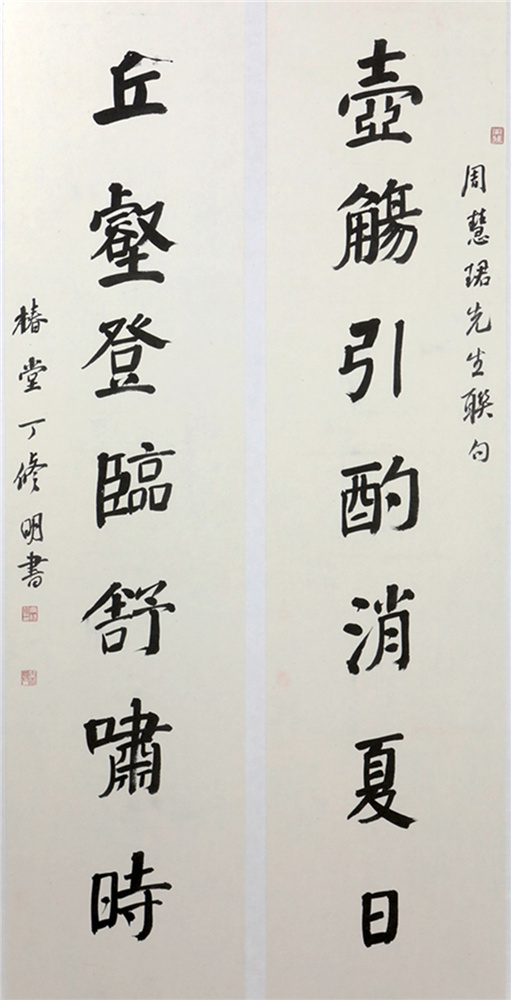 周慧珺先生聯句
壺觴引酌消夏日
丘壑登臨舒嘯時
椿堂丁修明書